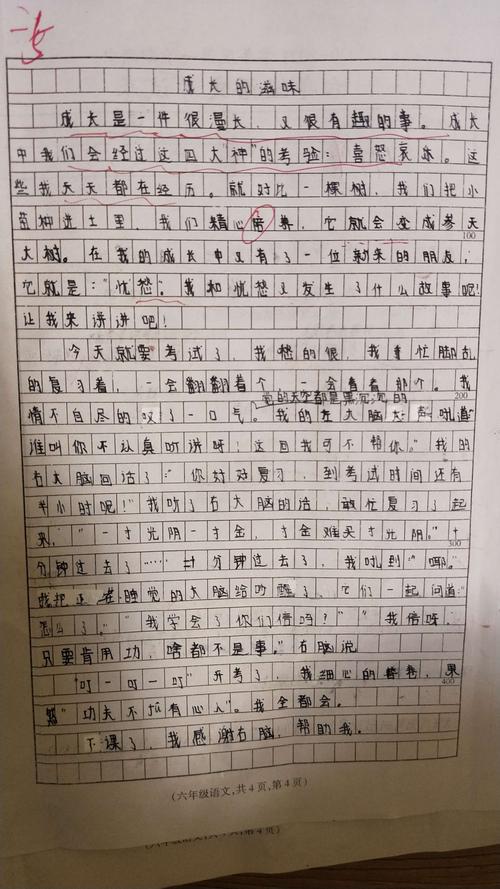 成长的滋味
成长是一件很漫长，又很有趣的事。成长
中我们会经过这四大神"的考验：喜怒哀乐。这
些我天天都在经历。就好比一棵树，我们把小
苗种进土里，我们精心培养，它就会变成参天
大树。在我的成长中又有了一位新来的朋友，
它就是："忧愁，我和忧愁又发生了什么故事呢！
让我来讲讲吧！
今天就要考试了，我愁的很，我手忙脚乱
的复习着，一会翻翻着个，一会看看那个。我
觉的天空都是黑沉沉的
情不自尽的叹了一口气。我的左大脑大声吼道"
谁叫你不认真听讲呀！这回我可不帮你。"我的
右大脑回话了："你好好复习，到考试时间还有
半小时呢！"我听了右大脑的话，敢忙复习了起
来，"一寸光阴一寸金，寸金难买寸光阴。"十
分钟过去了……二十分钟过去了，我吼到："哪。"
我把正在睡觉的大脑给吵醒了，它们一起问道：
怎么了。""我学会了你们信吗？""我信呀，
只要肯用功，啥都不是事。"右脑说
"叮一叮一叮"开考了，我细心的答卷，果
然"功夫不负有心人"。我全都会。
下课了，我感谢右脑，帮助我。
100
200
300
400
（六年级语文，共4页，第4页）